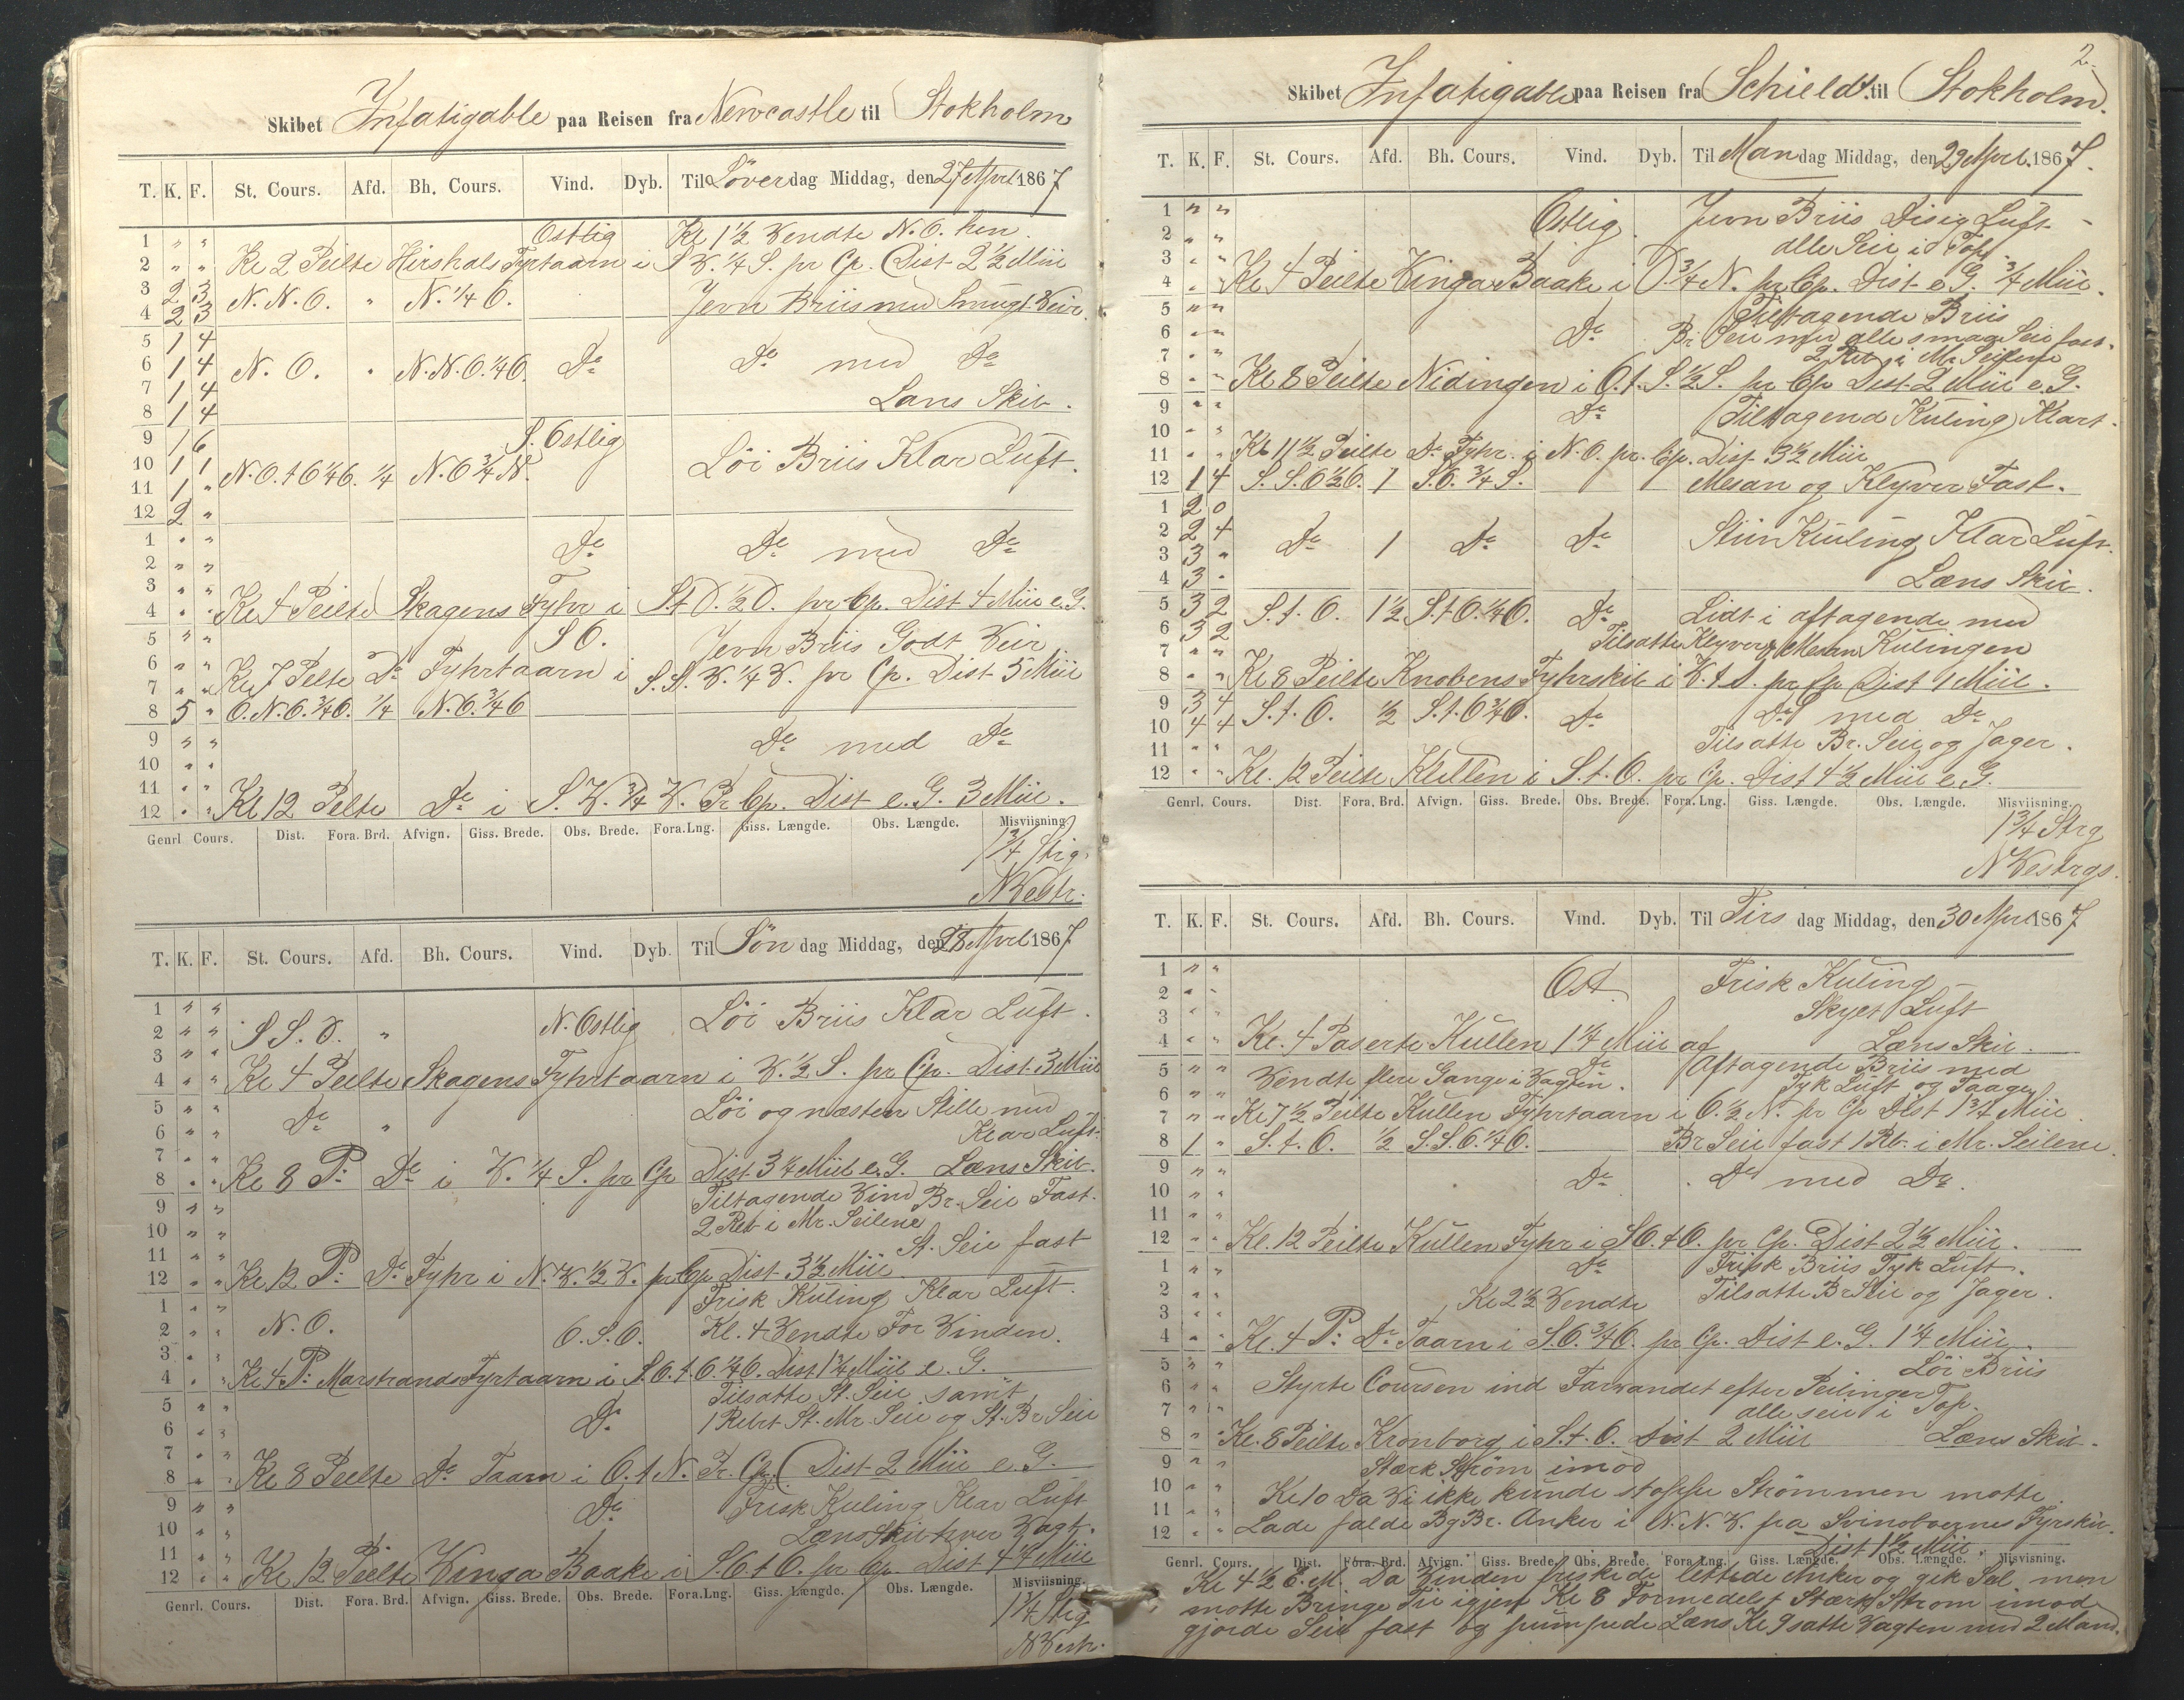 Skibet Infatigable paa Reisen fra Newcastle til Stokholm
T. K. F. St. Cours. Afd. Bh. Cours. Vind. Dyb. Til Löverdag Middag, den 27 April 1867
1 " " Ostlig Kl 1½ Vendte N.O. hen.
2 " " Kl 2 Peilte Hirshals Fyrtaarn i S.V. ¼ S. pr Cp. Dist 2½ Miil
3 2 3 N.N.O. " N. ¼ O.
4 2 3 Jevn Briis med Smugt Veir.
5 1 4
6 1 4 N.O. " N.N.O. ¼ O. Do Do med Do
7 1 4
8 1 4 Lans Skib.
9 1 6 S. Ostlig
10 1 1 N.O. t O ¼ O. ¼ N.O ¾ N. Löi Briis Klar Luft.
11 1 "
12 2 "
1 " " Do Do med Do
2 " "
3 " "
4 " " Kl 4 Peilte Skagens Fyhr i S.t V. ½ V. pr Cp. Dist 4 Miil e.G.
5 " " S O. Jevn Briis Godt Veir
6 " "
7 " " Kl 7 Pelte Do Fyhrtaarn i S.S.V. ¼ V. pr Cp. Dist 5 Miil
8 5 " O.N.O. ¾ O. ¼ N.O. ¾ O
9 " " Do med Do
10 " "
11 " "
12 " " Kl 12 Pelte Do i S.V. ¾ V. Pr Cp. Dist e.G. 3 Miil.
Genrl Cours. Dist. Fora. Brd. Afvign. Giss. Brede. Obs. Brede. Fora. Lng. Giss. Længde. Obs. Længde. Misviisning.
1¾ Strig.
N Vestr.
T. K. F. St. Cours. Afd. Bh. Cours. Vind. Dyb. Til Søn dag Middag, den 28 April 1867
1 " " Löi Briis Klar Luft.
2 " " S S.O. " N. Ostlig
3 " "
4 " " Kl 4 Peilte Skagens Fyhrtaarn i V. ½ S. pr Cp. Dist 3 Miil
5 " " Do " Löi og næsten Stille med
6 " " Klar Luft.
7 " "
8 " " Kl 8 P: Do i V. ¼ S. pr Cp Dist 3¼ Miil e.G. Læns Skib.
9 " " Tiltagende Vind Br. Seil Fast.
10 " " 2 Reb i Mr. Seilene
11 " " St. Seil fast
12 " " Kl 12 P: Do Fyhr i N.V. ½ V. pr Cp Dist 3½ Miil
1 " " Frisk Kuling Klar Luft.
2 " " N.O. O.S.O. Kl. 4 Vendte For Vinden.
3 " "
4 " " Kl 4 P: Marstrands Fyrtaarn i S.O.t.O ¼ O. Dist 1¾ Miil e.G.
5 " " Tilsatte St. Seil samt
6 " " Do 1 Rebet St. Mr. Seil og St. Br Seil
7 " "
8 " " Kl 8 Peilte Do Taarn i O.t N. Pr. Cp. Dist 2 Miil e.G.
9 " " Do Frisk Kuling Klar Luft
10 " " Læns Skib hver Vagt.
11 " "
12 " " Kl 12 Peilte Vinga Baake i S.O t O. pr Cp. Dist 4¼ Miil
Genrl. Cours. Dist. Fora. Brd. Afvign. Giss. Brede. Obs. Brede. Fora. Lng. Giss. Længde. Obs. Længde. Misviisning.
1¾ Strg
N Vestr.
2.
Skibet Infatigable paa Reisen fra Schieldt. til Stokholm.
T. K. F. St. Cours. Afd. Bh. Cours. Vind. Dyb. Til Mandag Middag, den 29 April 1867.
1 " " Ostlig. Jevn Briis Disig Luft
2 " " alle Seil i Top.
3 " "
4 " " Kl 4 Peilte Vinga Baake i O. ¾ N. pr Cp. Dist e G. ¾ Miil.
5 " " Tiltagende Briis
6 " " Do Br Seil med alle smaa Seil fast.
7 " " 2 Reb i Mr Seilene
8 " " Kl 8 Peilte Nidingen i O.t.S. ½ S. pr Cp Dist 2 Miil e.G.
9 " " Do Tiltagend Kuling Klart.
10 " "
11 " " Kl 11½ Peilte Do Fyhr. i N.O. pr. Cp. Dist 3½ Miil
12 1 4 S.S.O ½ O. 1 S.O. ¾ S. Mesan og Klyver Fast.
1 2 0
2 2 4 Do 1 Do Do Stiv Kuling Klar Luft.
3 3 "
4 3 " Læns Skib.
5 3 2 S.t.O. 1½ S.t O. ¼ O. Do Lidt i aftagende med
6 3 2 Tilsatte Klyver & Mesan Kulingen
7 " "
8 " " Kl 8 Peilte Knobens Fyhrskib i V.t S. pr Cp Dist 1 Miil.
9 3 4 S.t.O. ½ S.t.O ¾ O. Do Do med Do
10 4 4
11 " " Tilsatte Br. Seil og Jager.
12 " " Kl. 12 Peilte Kullen i S.t.O. pr Cp. Dist 4½ Miil e.G.
Genrl. Cours. Dist. Fora. Brd. Afvign. Giss. Brede. Obs. Brede. Fora. Lng. Giss. Længde. Obs. Længde. Misviisning.
1¾ Strg
N Vestrgs.
T. K. F. St. Cours. Afd. Bh. Cours. Vind. Dyb. Til Tirs dag Middag, den 30 April 1867
1 " " Ost. Frisk Kuling
2 " " Skyet Luft
3 " "
4 " " Kl. 4 Paserte Kullen 1¼ Miil af Læns Skib.
5 " " Do Aftagende Briis med
6 " " Vendte flere Gange i Vagten. Tyk Luft og Taage
7 " " Kl 7½ Peilte Kullen Fyhrtaarn i O. ½ N. pr Cp Dist 1¾ Miil.
8 1 " S.t.O. ½ S.S.O. ¼ O. Br Seil fast 1 Rb. i Mr. Seilene.
9 " " Do Do med Do.
10 " "
11 " "
12 " " Kl. 12 Peilte Kullen Fyhr i S O.t O. pr Cp. Dist 2½ Miil.
1 " " Do Frisk Briis Tyk Luft.
2 " " Kl 2½ Vendte Tilsatte Br Seil og Jager.
3 " "
4 " " Kl. 4 P: Do Taarn i S.O. ¾ O. pr Cp. Dist e.G. 1¼ Miil.
5 " " Löi Briis
6 " " Styrte Coursen ind Farvandet efter Peilinger
7 " " alle seil i Top.
8 " " Kl. 8 Peilte Kronborg i S.t.O. Dist 2 Miil Læns Skib.
9 " " Stærk Ström imod
10 " " Kl 10 Da Vi ikke kunde stoppe Strømmen motte.
11 " "
12 " " Lade falde Bg Br. Anker i N.N.V. fra Svinoboernes Fyrskib.
Dist 1½ Miil.
Genrl. Cours. Dist. Fora. Brd. Afvign. Giss. Brede. Obs. Brede. Fora Lng. Giss. Længde. Obs. Længde. Misvisning.
Kl 4½ E.M. Da Vinden friskede lettede Anker og gik Seil men
motte Bringe Til igjen Kl 8 Formedelst Stærk Strøm imod
gjorde Seil fast og pumpede Læns Kl 9 satte Vagten med 2 Mand.